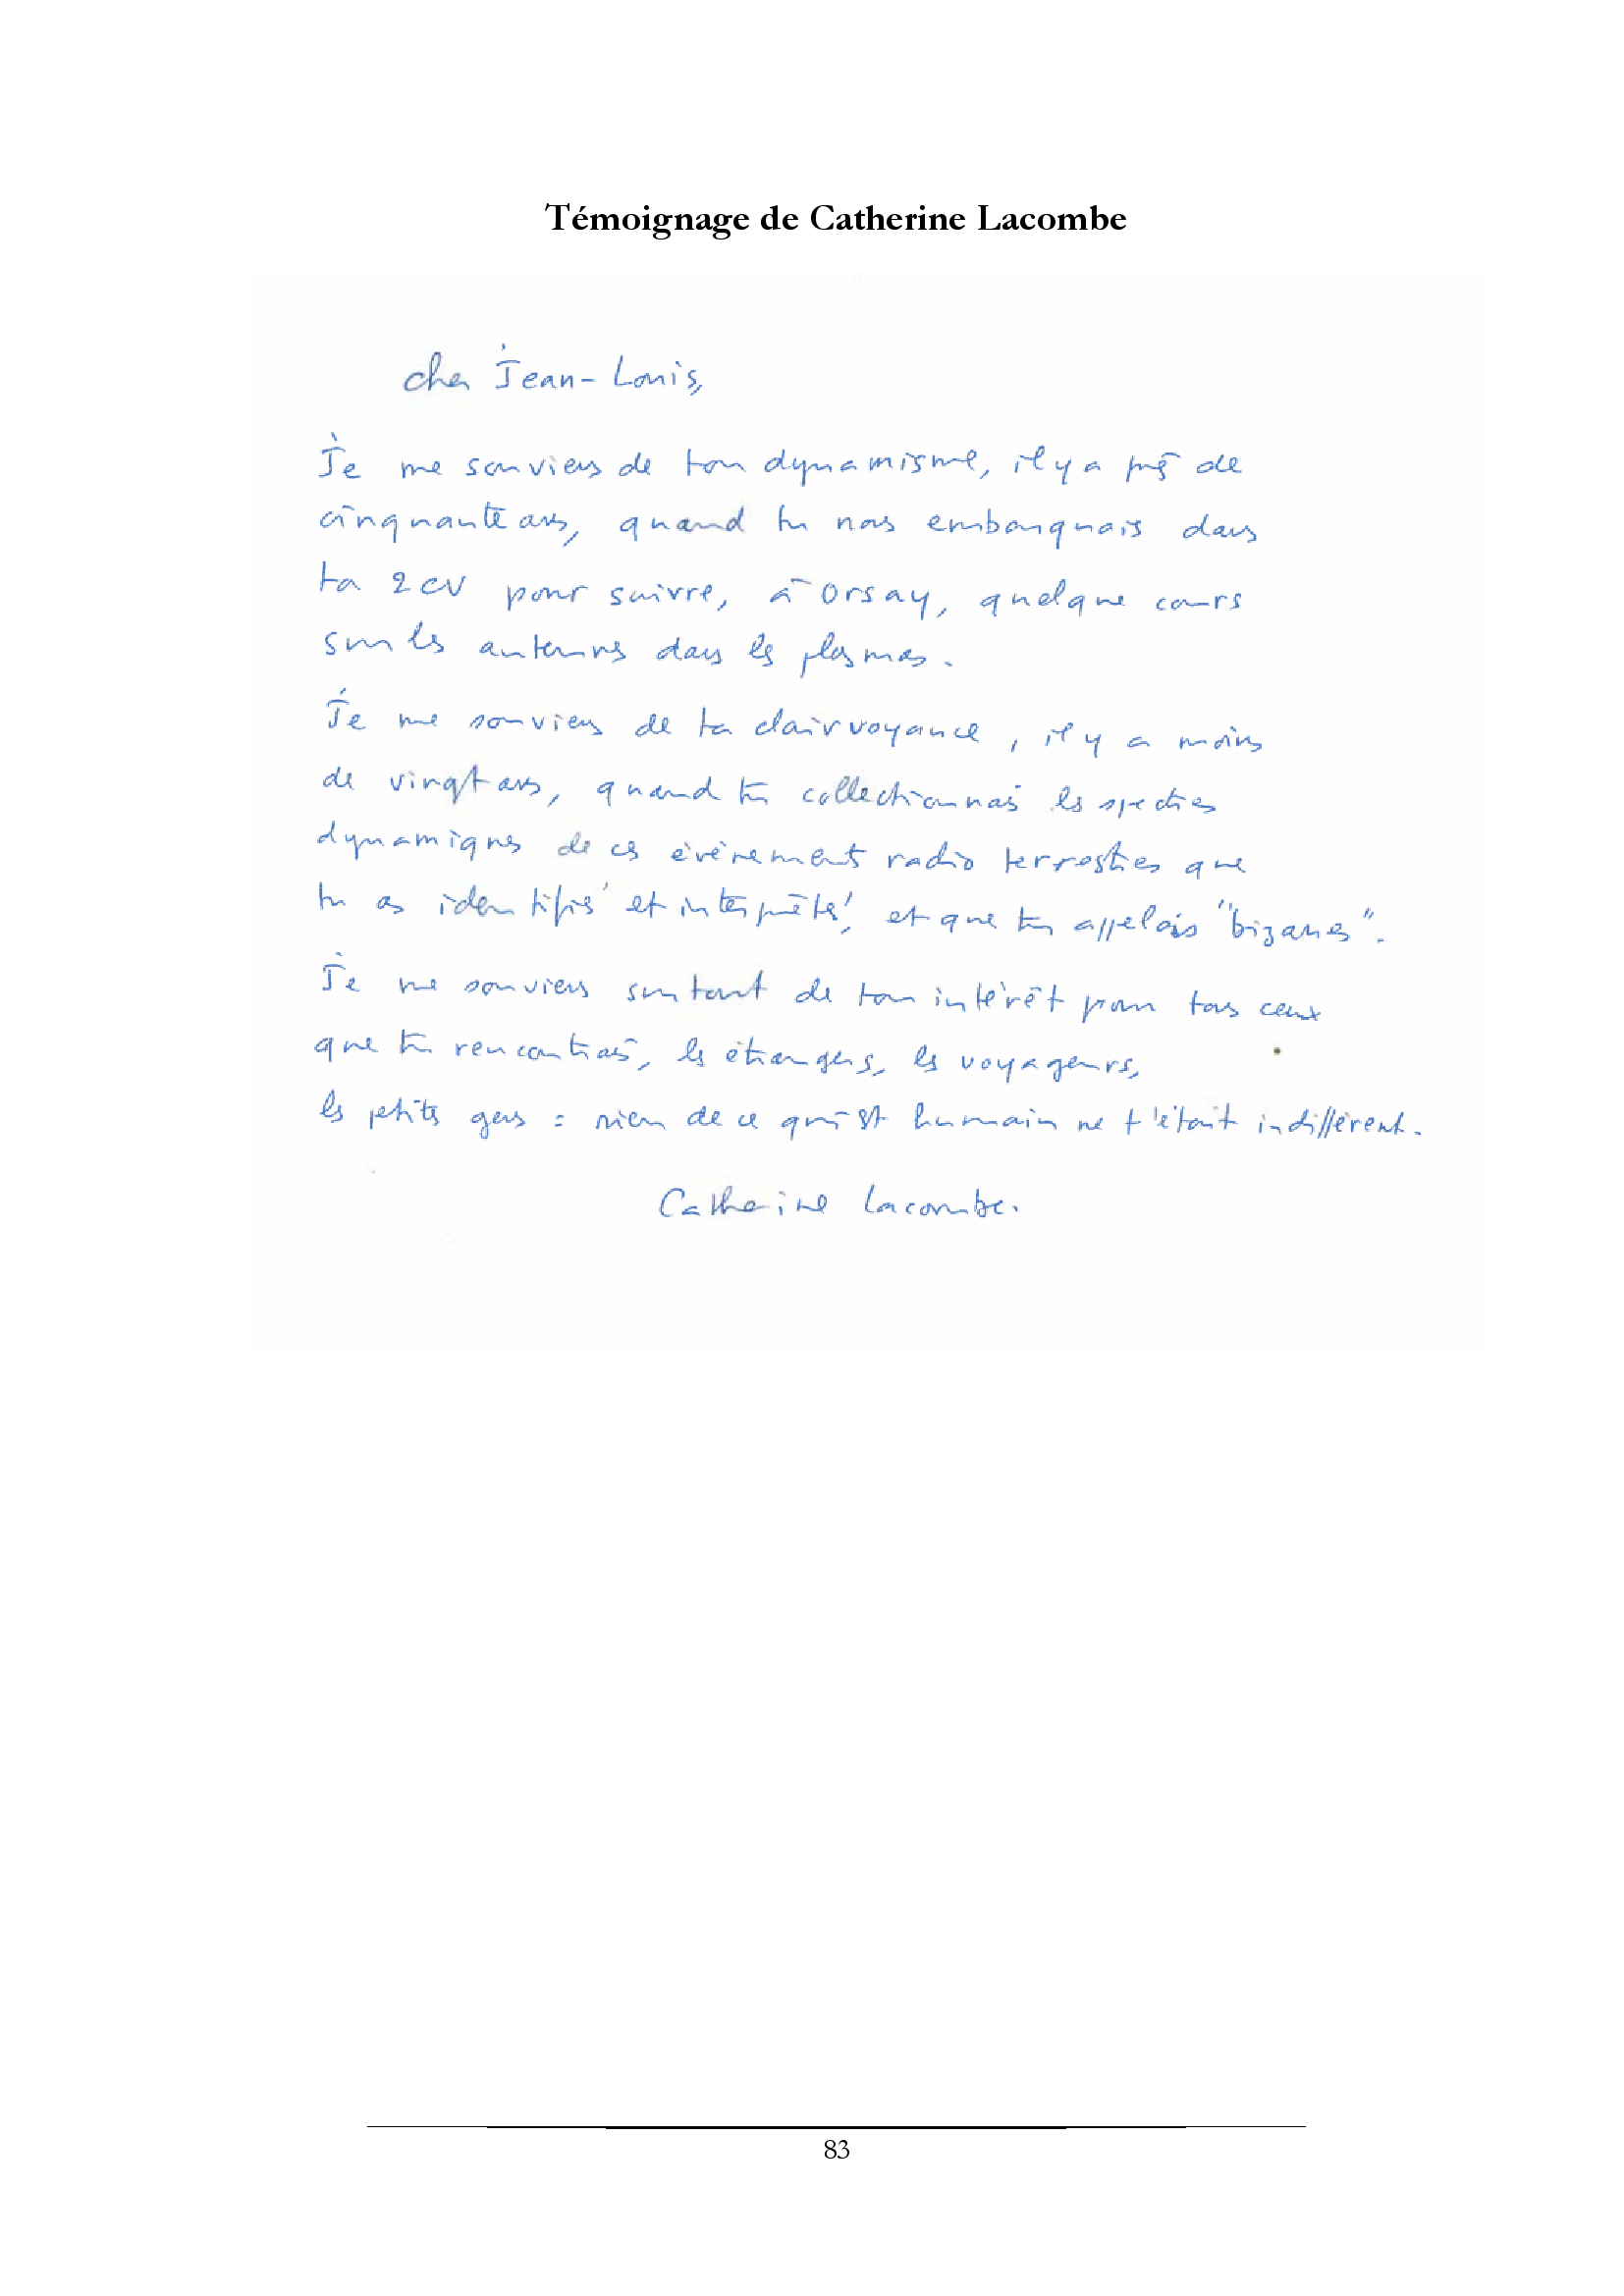 Témoignage de Catherine Lacombe
cher Jean-Louis,
Je me souviens de ton dynamisme, il y a près de
cinquante ans, quand tu nous embarquais dans
ta 2 CV pour suivre, à Orsay, quelque cours
sur les antennes dans les plasmas.
Je me souviens de ta clairvoyance, il y a moins
de vingt ans, quand tu collectionnais les spectres
dynamiques de ces évènements radio terrestres que
tu as identifiés et interprétés, et que tu appelais "bizarres".
Je me souviens surtout de ton intérêt pour tous ceux
que tu rencontrais, les étrangers, les voyageurs,
les petits gens : rien de ce qui est humain ne t'était indifférent.
Catherine Lacombe.
83